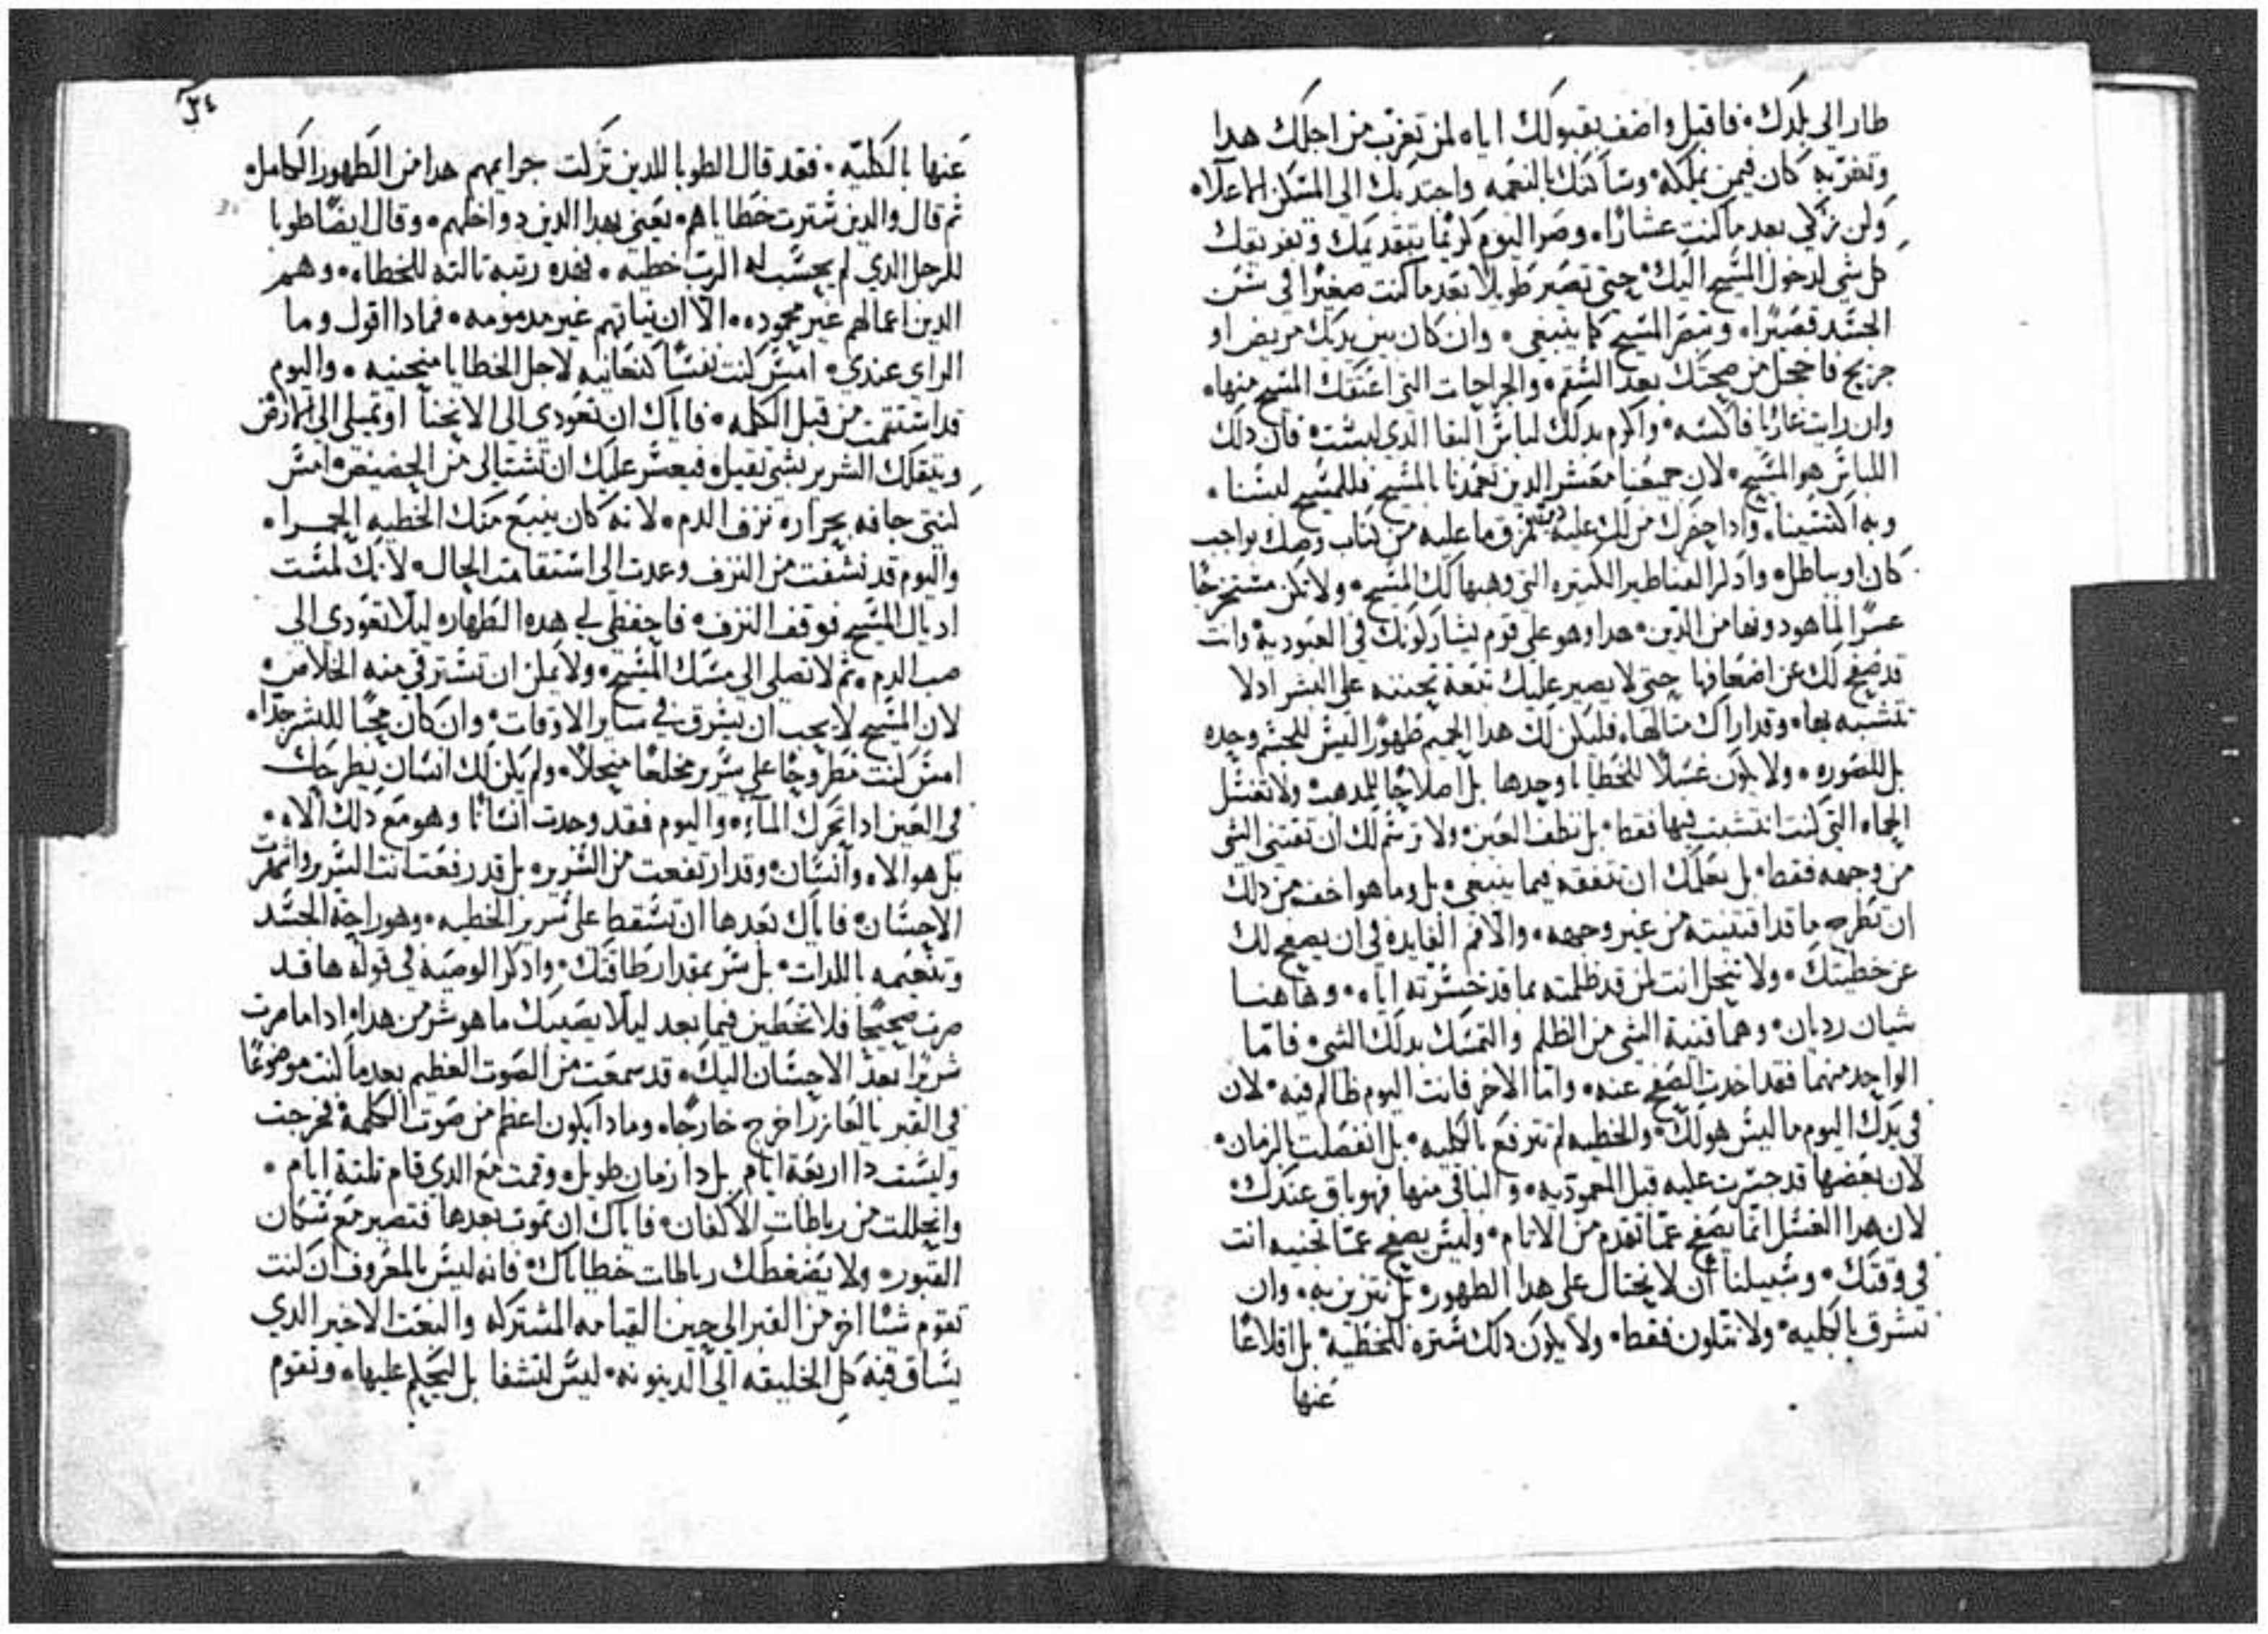 طار الي بلدك. فاقبل واضف بقبولك اياه لمن تغرب من اجلك هدا
وتغربه كان فيمن يملكه وساكنك بالنعمه واجتدبك الى المسكن الاعلا.
وكن زكي بعد ما كنت عشارا. وصر اليوم كريما بتقديمك وتفريقك
كل شي لدخول المسيح اليك. حتى تصير طويلا بعد ما كنت صغيرا في سن
الجسد قصيرا. وتبصر المسيح كما ينبغي. وان كان بين يديك مريض او
جريح فاخجل من صحتك بعد السقم. والجراحات التي اعتقك المسيح منها.
وان رايت عاريا فاكسه. واكرم بدلك لباس البقا الدي لبست. فان دلك
اللباس هو المسيح. لان جميعنا معشر الدين تعمدنا بالمسيح فللمسيح لبسنا.
وبه اكتسينا. وادا حضرك من لك عليه دين تمزق ما عليه من كتاب وصك بواجب
كان او بباطل. وادكر القناطير الكتيره التي وهبها لك المسيح. ولا تكن مستخرجا
عسرا لما هو دونها من الدين. هدا وهو على قوم يشاركونك في العبوديه. وانت
قد صفح لك عن اضعافها حتى لا يصير عليك تبعة تحننه على البشر اد لا
تتشبه بها. وقد اراك متالها. فليكن لك هدا الحميم طهورا ليس للجسم وحده
بل للصوره. ولا يكون غسلا للخطايا وحدها بل اصلاحا للمدهب. ولا تغسل
الحماه التي كنت انتشبت فيها فقط. بل نظف العين. ولا ترسم لك ان تقتني الشي
من وجهه فقط. بل يعلمك ان تنفقه فيما ينبغي. بل وما هو اخف من دلك
ان تطرح ما قد اقتنيته من غير وجهه. والا فم الفايده في ان يصفح لك
عن خطيتك. ولا تنحل انت لمن قد ظلمته بما قد خسرته اياه. وهاهنا
شيان رديان. وهما قنية الشي من الظلم والتمسك بدلك الشي. فاما
الواحد منهما فقد اخدت الصفح عنه. واما الاخر فانت اليوم ظالم فيه. لان
في يدك اليوم ما ليس هو لك. والخطيه لم ترتفع بالكليه. بل انفصلت بالزمان.
لان بعضها قد جسرت عليه قبل المعموديه. والباقي منها فهو باق عندك.
لان هدا الغسل انما يصفح عما تقدم من الاتام. وليس يصفح عما تجنيه انت
في وقتك. وسبيلنا ان لا نحتال على هدا الطهور. بل نتزين به. وان
تشرق بالكليه. ولا تتلون فقط. ولا يكون دلك ستره للخطيه. بل اقلاعا
عنها
٣٤
عنها بالكليه. فقد قال الطوبا للدين تركت جرايمهم هدا من الطهور الكامل.
تم قال والدين سترت خطاياهم. يعني بهدا الدين دواخلهم. وقال ايضا طوبا
للرجل الدي لم يحسب له الرب خطيه. فهده رتبه تالته للخطاه. وهم
الدين اعمالهم غير محموده. الا ان نياتهم غير مدمومه. فمادا اقول وما
الراي عندي. امس كنت نفسا كنعانيه لاجل الخطايا منحنيه. واليوم
قد استقمت من قبل الكلمه. فاياك ان تعودي الى الانحنا او تميلي الى الارض
ويتقلك الشرير بشي تقيل. فيعسر عليك ان تنشتالي من الحضيض. امس
كنتي جافه بحراره نزف الدم. لانه كان ينبع منك الخطيه الحمرا.
واليوم قد نشفت من النزف وعدت الى استقامت الحال. لانك لمست
اديال المسيح فوقف النزف. فاحفظي لي هده الطهاره ليلا تعودي الى
صب الدم. تم لا تصلي الى مسك المسيح. ولا يمكن ان تسترقي منه الخلاص.
لان المسيح لا يجب ان يسرق في ساير الاوقات. وان كان محبا للبشر جدا.
امس كنت مطروحا على سرير مخلعا منحلا. ولم يكن لك انسان يطرحك
في العين ادا تحرك الماء. واليوم فقد وجدت انسانا وهو مع دلك الاه.
بل هو الاه وانسان. وقد ارتفعت من السرير. بل قد رفعت انت السرير واشهرت
الاحسان. فاياك بعدها ان تسقط على سرير الخطيه. وهو راحة الجسد
وتنعيمه باللدات. بل سر بمقدار طاقتك. وادكر الوصيه في قوله ها قد
صرت صحيحا فلا تخطين فيما بعد ليلا يصيبك ما هو شر من هدا. ادا ما صرت
شريرا بعد الاحسان اليك. قد سمعت من الصوت العظيم بعد ما كنت موضوعا
في القبر يا لعازر اخرج خارجا. ومادا يكون اعظم من صوت الكلمة فخرجت
ولست دا اربعة ايام بل دا زمان طويل. وقمت مع الدي قام تلتة ايام.
وانحللت من رباطات الاكفان. فاياك ان تموت بعدها فتصير مع سكان
القبور. ولا يضغطك رباطات خطاياك. فانه ليس بالمعروف ان كنت
تقوم شيا اخر من القبر الى حين القيامه المشتركه والبعت الاخير الدي
يساق فيه كل الخليقه الى الدينونه. ليس لتشفا بل ليحكم عليها. وتقوم